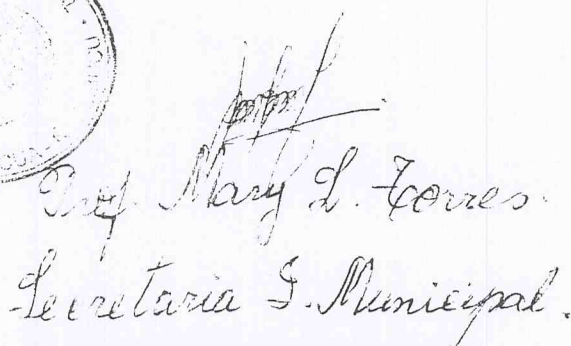 Prof. Mary L. Torres.
Secretaria I. Municipal.